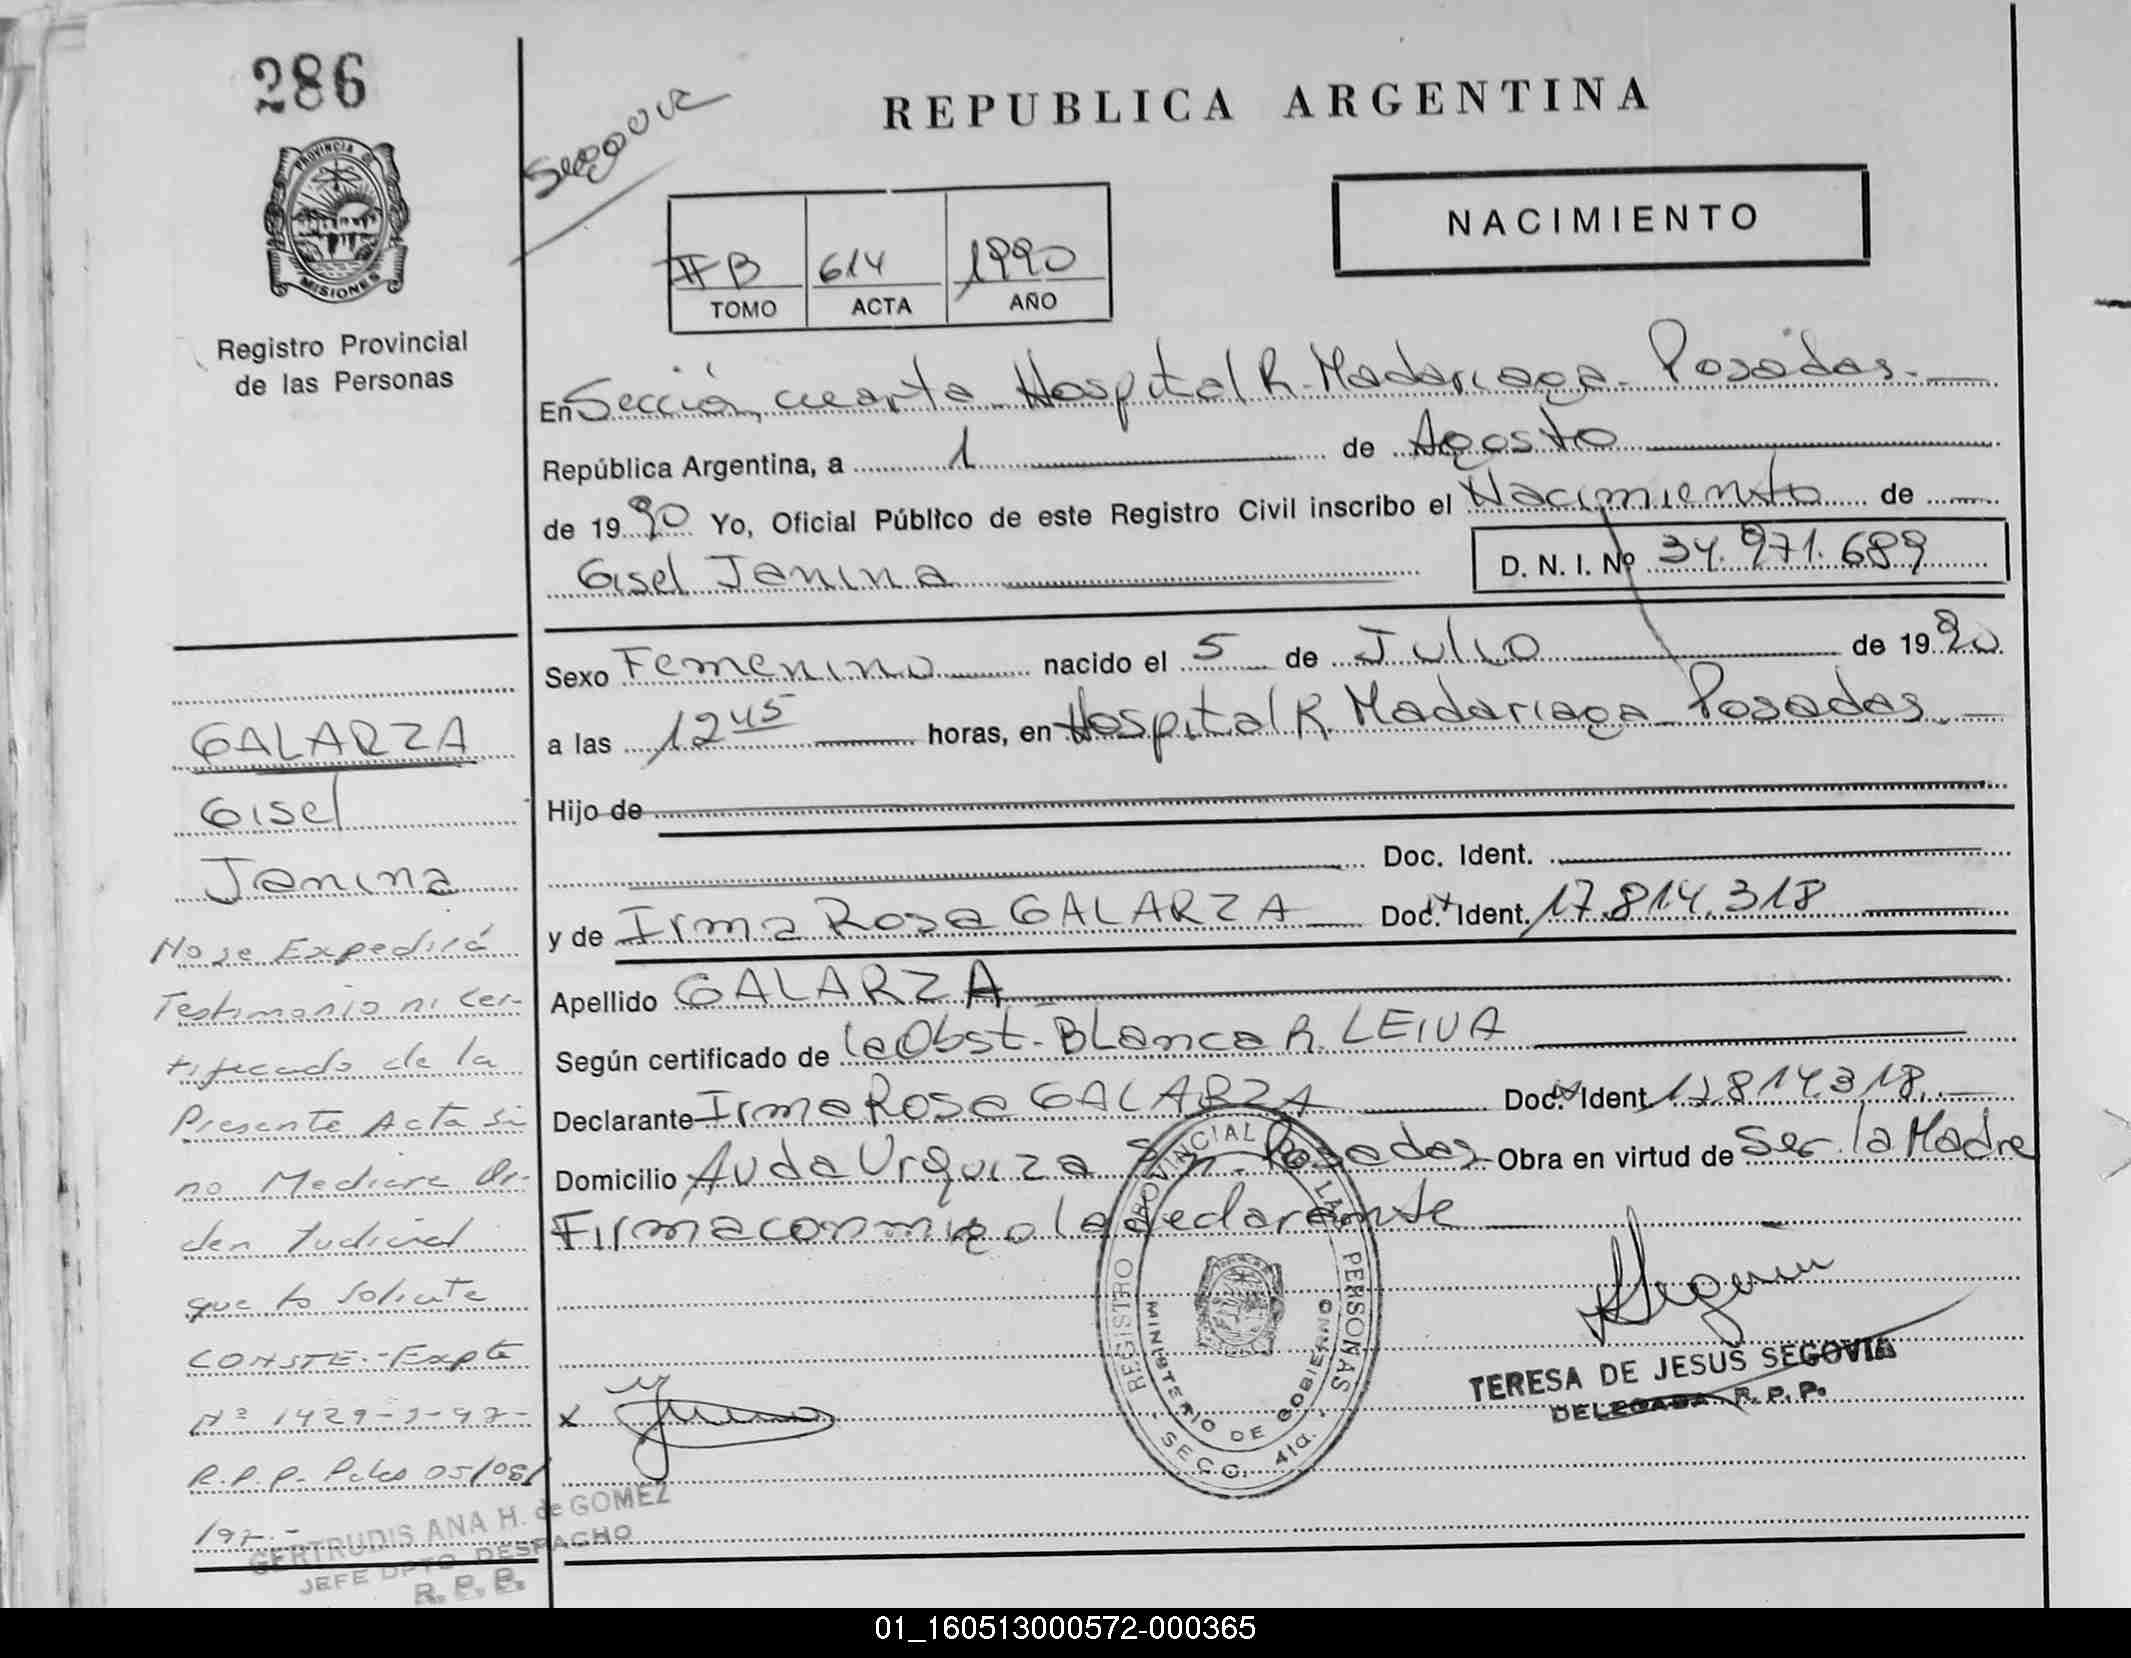 286
Segovia
REPUBLICA ARGENTINA
PROVINCIA DE
MISIONES
Registro Provincial
de las Personas
NACIMIENTO
II B 614 1990
TOMO ACTA AÑO
En Sección, cuarta Hospital R. Madariaga Posadas.
República Argentina, a 1 de Agosto
de 1990 Yo, Oficial Público de este Registro Civil inscribo el Nacimiento de
Gisel Janina D. N. I. Nº 34.971.689
Sexo Femenino nacido el 5 de Julio de 1990
a las 12 45 horas, en Hospital R. Madariaga Posadas.
Hijo de
Doc. Ident.
y de Irma Rosa GALARZA Doc. Ident. 17.814.318
Apellido GALARZA
Según certificado de la Obst. Blanca R. LEIVA
Declarante Irma Rosa GALARZA Doc. Ident. 17.814.318.
Domicilio Avda Urquiza S/n. Posadas Obra en virtud de Ser la Madre
Firma conmigo la declarante
GALARZA
Gisel
Janina
No se Expedirá
Testimonio ni Cer-
tificado de la
Presente Acta si
no Mediare Or-
den Judicial
que lo Solicite
CONSTE.- Expte
Nº 1429-
R.P.P. Pdas 05/08/
97.-
GERTRUDIS ANA H. de GOMEZ
JEFE DPTO DESPACHO
x
REGISTRO PROVINCIAL DE LAS PERSONAS
MINISTERIO DE GOBIERNO
SECC. 4ta.
TERESA DE JESUS SEGOVIA
DELEGADA R.P.P.
01_160513000572-000365